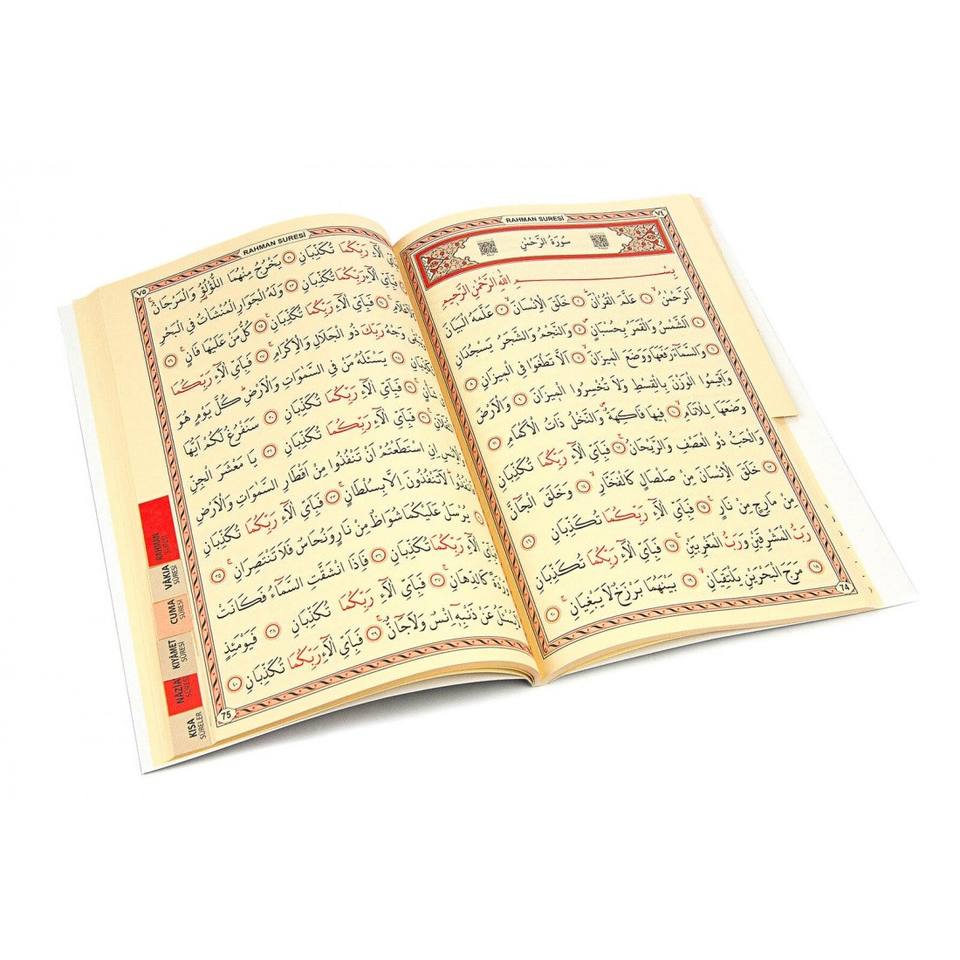 RAHMAN SURESİ
٧٤
سُورَةُ الرَّحْمٰنِ
بِسْمِ اللّٰهِ الرَّحْمٰنِ الرَّحِيمِ
اَلرَّحْمٰنُ ١ عَلَّمَ الْقُرْاٰنَ ٢ خَلَقَ الْاِنْسَانَ ٣ عَلَّمَهُ الْبَيَانَ
٤ اَلشَّمْسُ وَالْقَمَرُ بِحُسْبَانٍ ٥ وَالنَّجْمُ وَالشَّجَرُ يَسْجُدَانِ
٦ وَالسَّمَٓاءَ رَفَعَهَا وَوَضَعَ الْمِيزَانَ ٧ اَلَّا تَطْغَوْا فِي الْمِيزَانِ ٨
وَاَقِيمُوا الْوَزْنَ بِالْقِسْطِ وَلَا تُخْسِرُوا الْمِيزَانَ ٩ وَالْاَرْضَ
وَضَعَهَا لِلْاَنَامِ ١٠ فِيهَا فَاكِهَةٌ وَالنَّخْلُ ذَاتُ الْاَكْمَامِ ١١
وَالْحَبُّ ذُو الْعَصْفِ وَالرَّيْحَانُ ١٢ فَبِاَيِّ اٰلَٓاءِ رَبِّكُمَا تُكَذِّبَانِ
١٣ خَلَقَ الْاِنْسَانَ مِنْ صَلْصَالٍ كَالْفَخَّارِ ١٤ وَخَلَقَ الْجَٓانَّ
مِنْ مَارِجٍ مِنْ نَارٍ ١٥ فَبِاَيِّ اٰلَٓاءِ رَبِّكُمَا تُكَذِّبَانِ ١٦
رَبُّ الْمَشْرِقَيْنِ وَرَبُّ الْمَغْرِبَيْنِ ١٧ فَبِاَيِّ اٰلَٓاءِ رَبِّكُمَا تُكَذِّبَانِ
١٨ مَرَجَ الْبَحْرَيْنِ يَلْتَقِيَانِ ١٩ بَيْنَهُمَا بَرْزَخٌ لَا يَبْغِيَانِ ٢٠
74
RAHMAN SURESİ
٧٥
اٰلَٓاءِ رَبِّكُمَا تُكَذِّبَانِ ٢١ يَخْرُجُ مِنْهُمَا اللُّؤْلُؤُ وَالْمَرْجَانُ
فَبِاَيِّ اٰلَٓاءِ رَبِّكُمَا تُكَذِّبَانِ ٢٣ وَلَهُ الْجَوَارِ الْمُنْشَاٰتُ فِي الْبَحْرِ
فَبِاَيِّ اٰلَٓاءِ رَبِّكُمَا تُكَذِّبَانِ ٢٥ كُلُّ مَنْ عَلَيْهَا فَانٍ ٢٦
وَجْهُ رَبِّكَ ذُو الْجَلَالِ وَالْاِكْرَامِ ٢٧ فَبِاَيِّ اٰلَٓاءِ رَبِّكُمَا
يَسْـَٔلُهُ مَنْ فِي السَّمٰوَاتِ وَالْاَرْضِ كُلَّ يَوْمٍ هُوَ
٢٩ فَبِاَيِّ اٰلَٓاءِ رَبِّكُمَا تُكَذِّبَانِ ٣٠ سَنَفْرُغُ لَكُمْ اَيُّهَ
٣١ فَبِاَيِّ اٰلَٓاءِ رَبِّكُمَا تُكَذِّبَانِ ٣٢ يَا مَعْشَرَ الْجِنِّ
اِنِ اسْتَطَعْتُمْ اَنْ تَنْفُذُوا مِنْ اَقْطَارِ السَّمٰوَاتِ وَالْاَرْضِ
لَا تَنْفُذُونَ اِلَّا بِسُلْطَانٍ ٣٣ فَبِاَيِّ اٰلَٓاءِ رَبِّكُمَا تُكَذِّبَانِ
يُرْسَلُ عَلَيْكُمَا شُوَاظٌ مِنْ نَارٍ وَنُحَاسٌ فَلَا تَنْتَصِرَانِ ٣٥
اٰلَٓاءِ رَبِّكُمَا تُكَذِّبَانِ ٣٦ فَاِذَا انْشَقَّتِ السَّمَٓاءُ فَكَانَتْ
كَالدِّهَانِ ٣٧ فَبِاَيِّ اٰلَٓاءِ رَبِّكُمَا تُكَذِّبَانِ ٣٨ فَيَوْمَئِذٍ
يُسْـَٔلُ عَنْ ذَنْبِهِ اِنْسٌ وَلَا جَٓانٌّ ٣٩ فَبِاَيِّ اٰلَٓاءِ رَبِّكُمَا تُكَذِّبَانِ ٤٠
75
RAHMAN SURESİ
VÂKIA SURESİ
CUMA SURESİ
KIYÂMET SURESİ
KISA SÛRELER